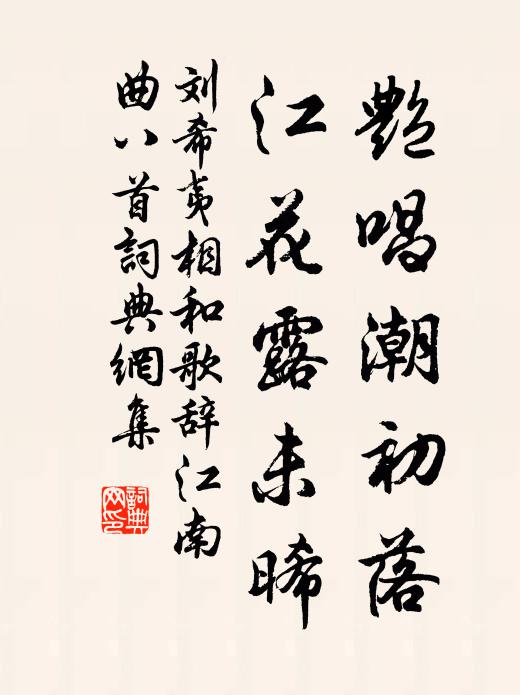 艷唱潮初落
江花露未晞
刘希夷相和歌辞江南
曲八首詞典網集
詞典網印